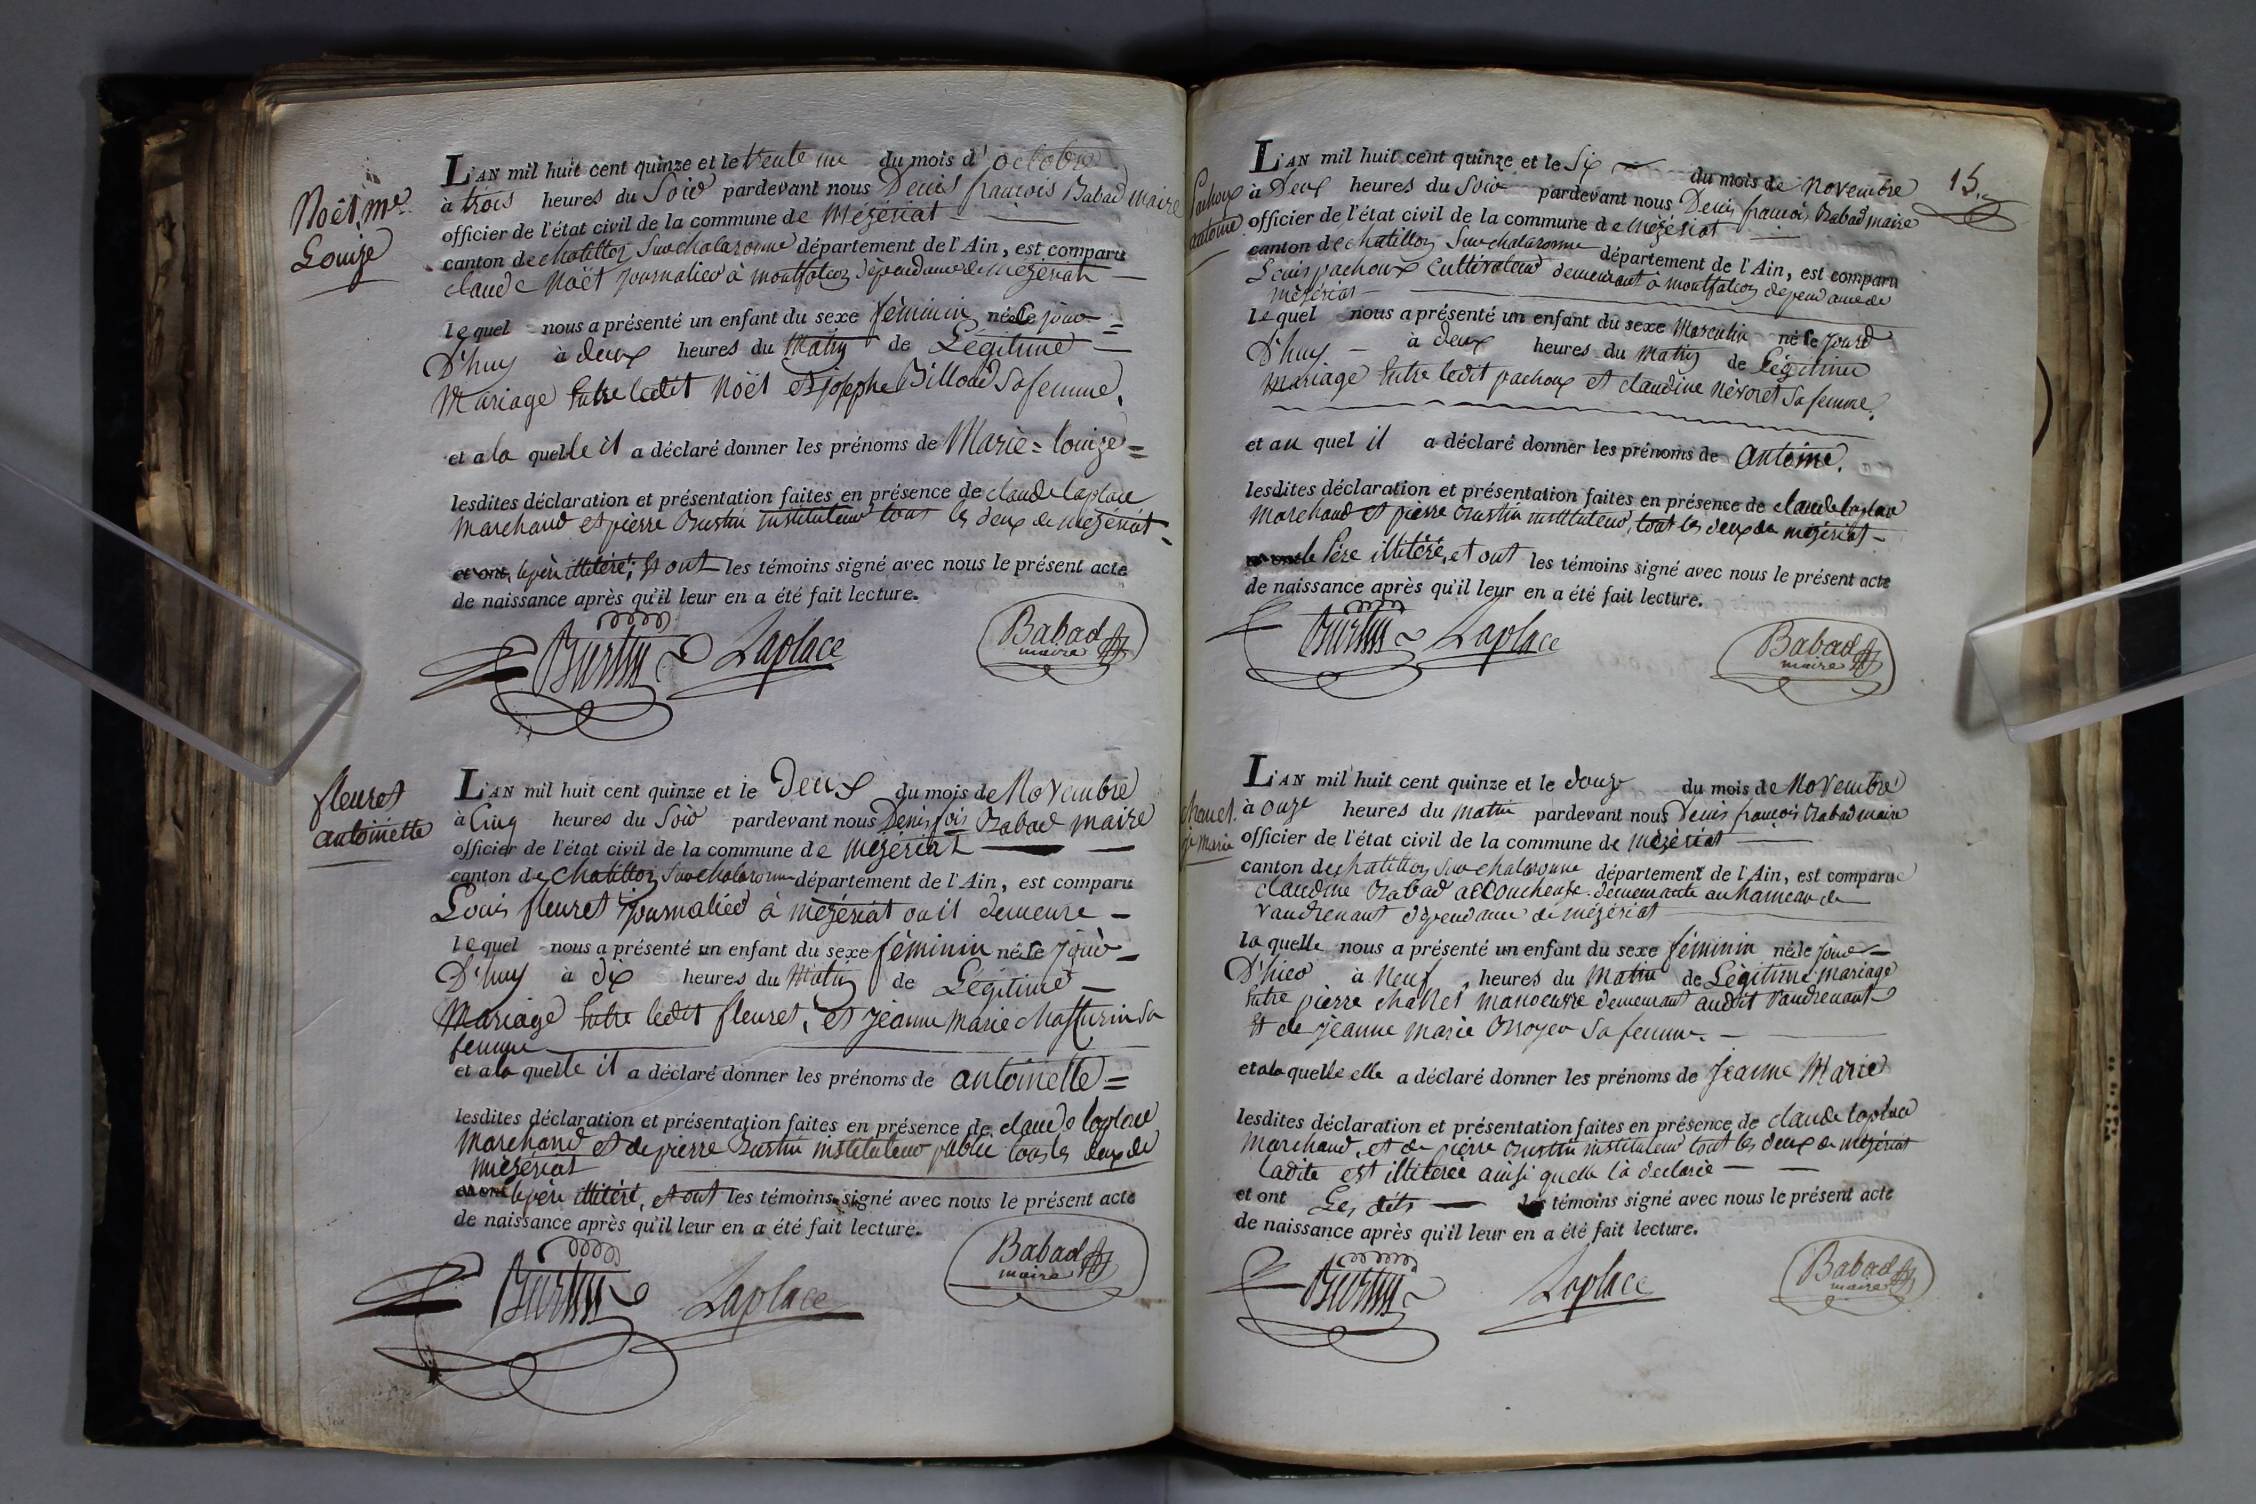 Noël, Me
Louize
L'AN mil huit cent quinze et le trente un du mois d'octobre
à trois heures du Soir pardevant nous Denis françois Babad maire
officier de l'état civil de la commune de Mézériat
canton de chatillon Sur chalaronne département de l'Ain, est comparu
claude Noël journalier à montfalcon dépendance de mézériat
lequel nous a présenté un enfant du sexe féminin né le jour
D'huy à deux heures du Matin de Légitime
Mariage Entre ledit Noël et josephe Billoud Sa femme.
et a la quelle il a déclaré donner les prénoms de Marie = louize =
lesdites déclaration et présentation faites en présence de claude laplace
Marchand et pierre Burtin instituteur tous les deux de mézériat
et ont, le père illitéré; Et ont les témoins signé avec nous le présent acte
de naissance après qu'il leur en a été fait lecture.
Burtin Laplace Babad
maire
fleuret
antoinette
L'AN mil huit cent quinze et le Deux du mois de Novembre
à Cinq heures du Soir pardevant nous Denis fois Babad maire
officier de l'état civil de la commune de mézériat
canton de chatillon Sur chalaronne département de l'Ain, est comparu
Louis fleuret journalier à mézériat ou il demeure
lequel nous a présenté un enfant du sexe féminin né le jour
D'huy à dix heures du Matin de Légitime
Mariage Entre ledit fleuret, et jeanne Marie chaffurin sa
femme
et a la quelle il a déclaré donner les prénoms de antoinette =
lesdites déclaration et présentation faites en présence de claude laplace
Marchand et de pierre Burtin instituteur public tous les deux de
mézériat
et ont le père illitéré, et ont les témoins signé avec nous le présent acte
de naissance après qu'il leur en a été fait lecture.
Burtin Laplace Babad
maire
15
Pachoux
antoine
L'AN mil huit cent quinze et le Six du mois de Novembre
à Deux heures du Soir pardevant nous Denis françois Babad maire
officier de l'état civil de la commune de Mézériat
canton de chatillon Sur chalaronne département de l'Ain, est comparu
Louis pachoux cultivateur demeurant à montfalcon dépendance de
mézériat
lequel nous a présenté un enfant du sexe Masculin né le jourd
D'huy à deux heures du Matin de Légitime
Mariage Entre ledit pachoux et claudine Névoret Sa femme.
et au quel il a déclaré donner les prénoms de antoine.
lesdites déclaration et présentation faites en présence de claude laplace
Marchand et pierre Burtin instituteur, tout les deux de mézériat
le Père illitéré, et ont les témoins signé avec nous le présent acte
de naissance après qu'il leur en a été fait lecture.
Burtin Laplace Babad
maire
chanel.
je Marie
L'AN mil huit cent quinze et le douze du mois de Novembre
à onze heures du matin pardevant nous Denis françois Babad maire
officier de l'état civil de la commune de mézériat
canton de chatillon Sur chalaronne département de l'Ain, est comparue
claudine Babad accoucheuse demeurante au hameau de
vaudrenant dépendance de mézériat
la quelle nous a présenté un enfant du sexe féminin né le jour
D'hier à Neuf heures du Matin de Légitime mariage
Entre pierre chanel manoeuvre demeurant audit vaudrenant
Et de jeanne Marie Broyer Sa femme.
et a la quelle elle a déclaré donner les prénoms de jeanne Marie
lesdites déclaration et présentation faites en présence de claude laplace
Marchand, et de pierre Burtin instituteur tout les deux de mézériat
Ladite est illitérée ainsi quelle la declarée
et ont Les dits les témoins signé avec nous le présent acte
de naissance après qu'il leur en a été fait lecture.
Burtin Laplace Babad
maire